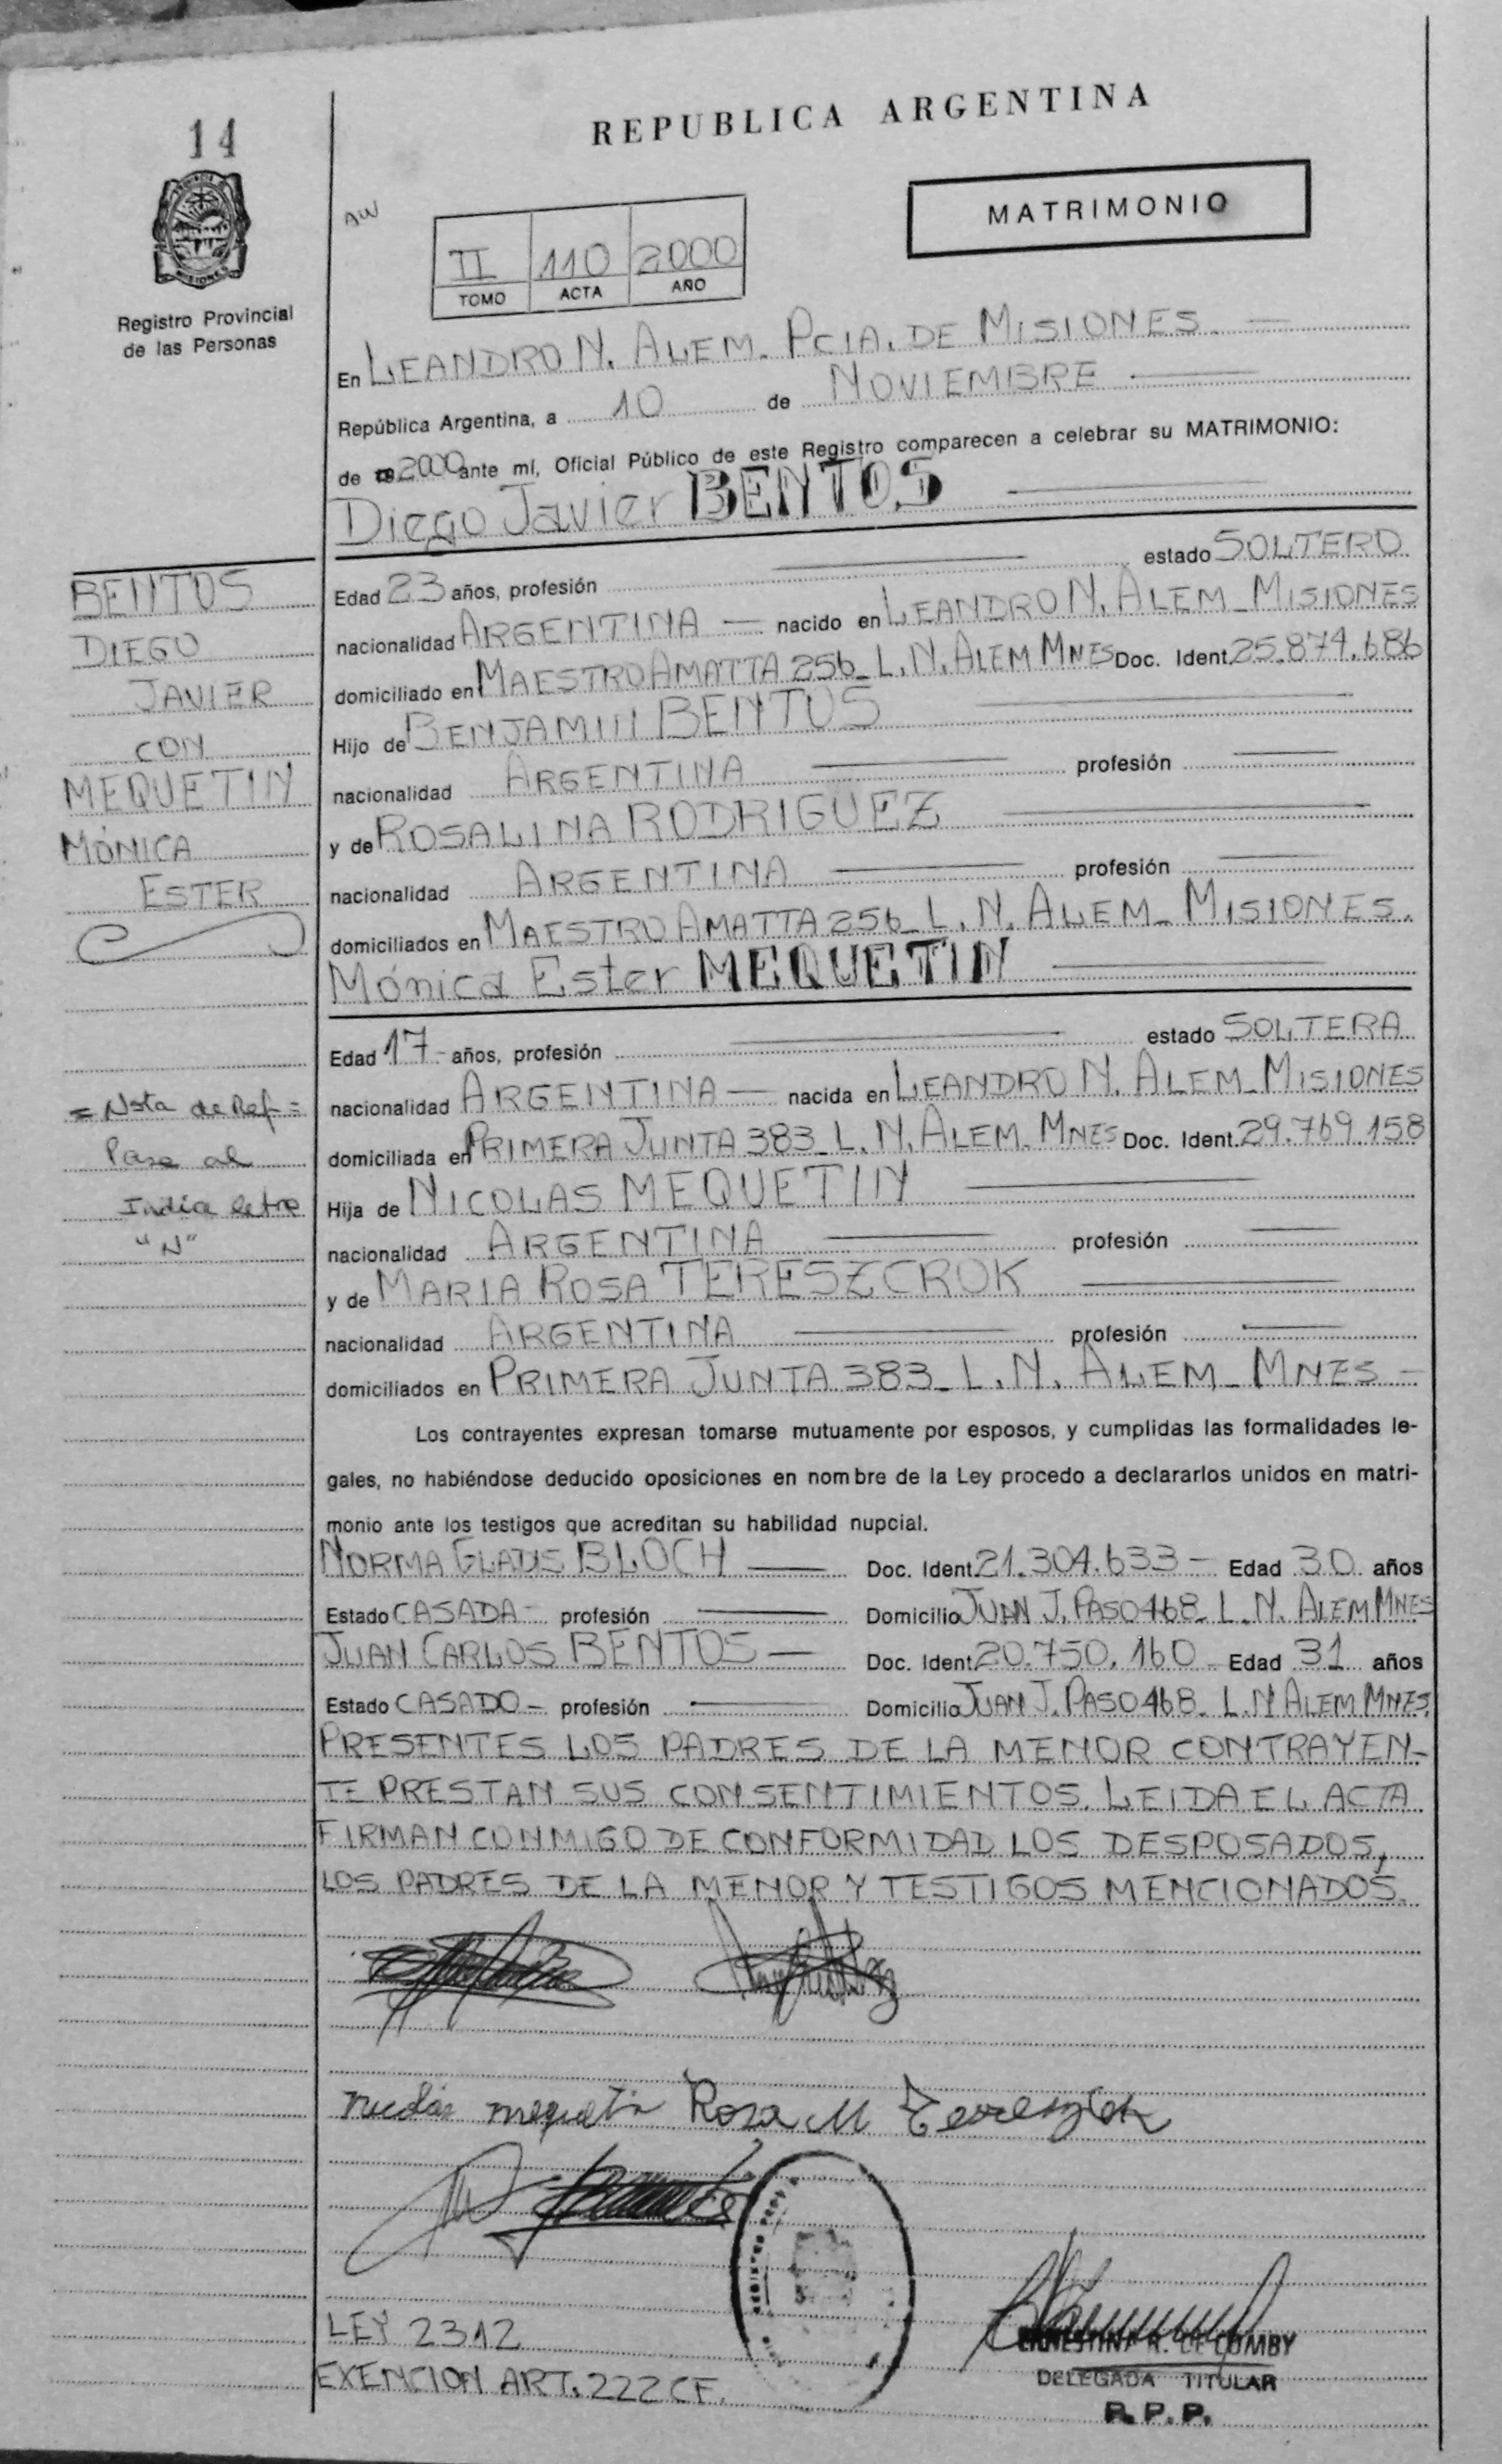 14
REPUBLICA ARGENTINA
MATRIMONIO
AW
II 110 2000
TOMO ACTA AÑO
Registro Provincial
de las Personas
En LEANDRO N. ALEM. PCIA. DE MISIONES.
República Argentina, a 10 de NOVIEMBRE
de 2000 ante mí, Oficial Público de este Registro comparecen a celebrar su MATRIMONIO:
Diego Javier BENTOS
Edad 23 años, profesión estado SOLTERO
nacionalidad ARGENTINA — nacido en LEANDRO N. ALEM - MISIONES
domiciliado en MAESTRO AMATTA 256 - L. N. ALEM MNES Doc. Ident. 25.874.686
Hijo de BENJAMIN BENTOS
nacionalidad ARGENTINA profesión
y de ROSALINA RODRIGUEZ
nacionalidad ARGENTINA profesión
domiciliados en MAESTRO AMATTA 256 - L. N. ALEM - MISIONES.
Mónica Ester MEQUETIN
Edad 17 - años, profesión estado SOLTERA
nacionalidad ARGENTINA — nacida en LEANDRO N. ALEM - MISIONES
domiciliada en PRIMERA JUNTA 383 - L. N. ALEM - MNES Doc. Ident. 29.769.158
Hija de NICOLAS MEQUETIN
nacionalidad ARGENTINA profesión
y de MARIA ROSA TERESZCRUK
nacionalidad ARGENTINA profesión
domiciliados en PRIMERA JUNTA 383 - L. N. ALEM - MNES -
Los contrayentes expresan tomarse mutuamente por esposos, y cumplidas las formalidades le-
gales, no habiéndose deducido oposiciones en nombre de la Ley procedo a declararlos unidos en matri-
monio ante los testigos que acreditan su habilidad nupcial.
NORMA GLADIS BLOCH — Doc. Ident. 21.304.633 - Edad 30 años
Estado CASADA - profesión — Domicilio JUAN J. PASO 468 - L. N. ALEM MNES
JUAN CARLOS BENTOS — Doc. Ident. 20.750.160 Edad 31 años
Estado CASADO - profesión — Domicilio JUAN J. PASO 468 - L. N ALEM MNES.
PRESENTES LOS PADRES DE LA MENOR CONTRAYEN-
TE PRESTAN SUS CONSENTIMIENTOS. LEIDA EL ACTA
FIRMAN CONMIGO DE CONFORMIDAD LOS DESPOSADOS,
LOS PADRES DE LA MENOR Y TESTIGOS MENCIONADOS.
Rosa M
LEY 2312
EXENCION ART. 222 CF.
ERNESTINA R. DE COMBY
DELEGADA TITULAR
R. P. P.
BENTOS
DIEGO
JAVIER
CON
MEQUETIN
MÓNICA
ESTER
= Nota de Ref =
Pase al
Indice letra
"N"